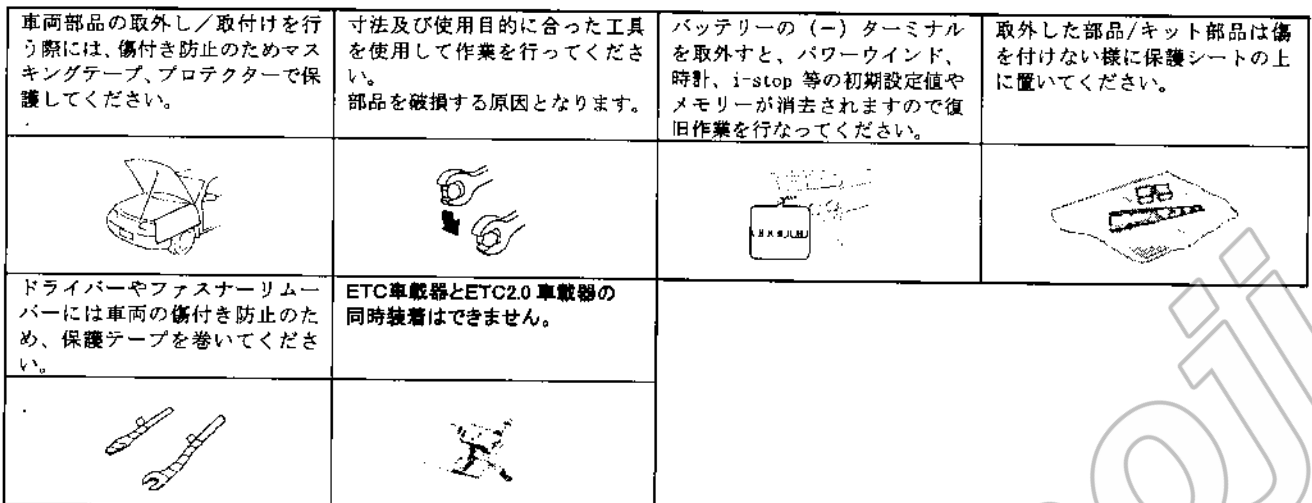 車両部品の取外し／取付けを行
う際には、傷付き防止のためマス
キングテープ、プロテクターで保
護してください。
寸法及び使用目的に合った工具
を使用して作業を行ってくださ
い。
部品を破損する原因となります。
バッテリーの（－）ターミナル
を取外すと、パワーウインド、
時計、i-stop 等の初期設定値や
メモリーが消去されますので復
旧作業を行なってください。
取外した部品/キット部品は傷
を付けない様に保護シートの上
に置いてください。
ドライバーやファスナーリムー
バーには車両の傷付き防止のた
め、保護テープを巻いてくださ
い。
ETC車載器とETC2.0 車載器の
同時装着はできません。